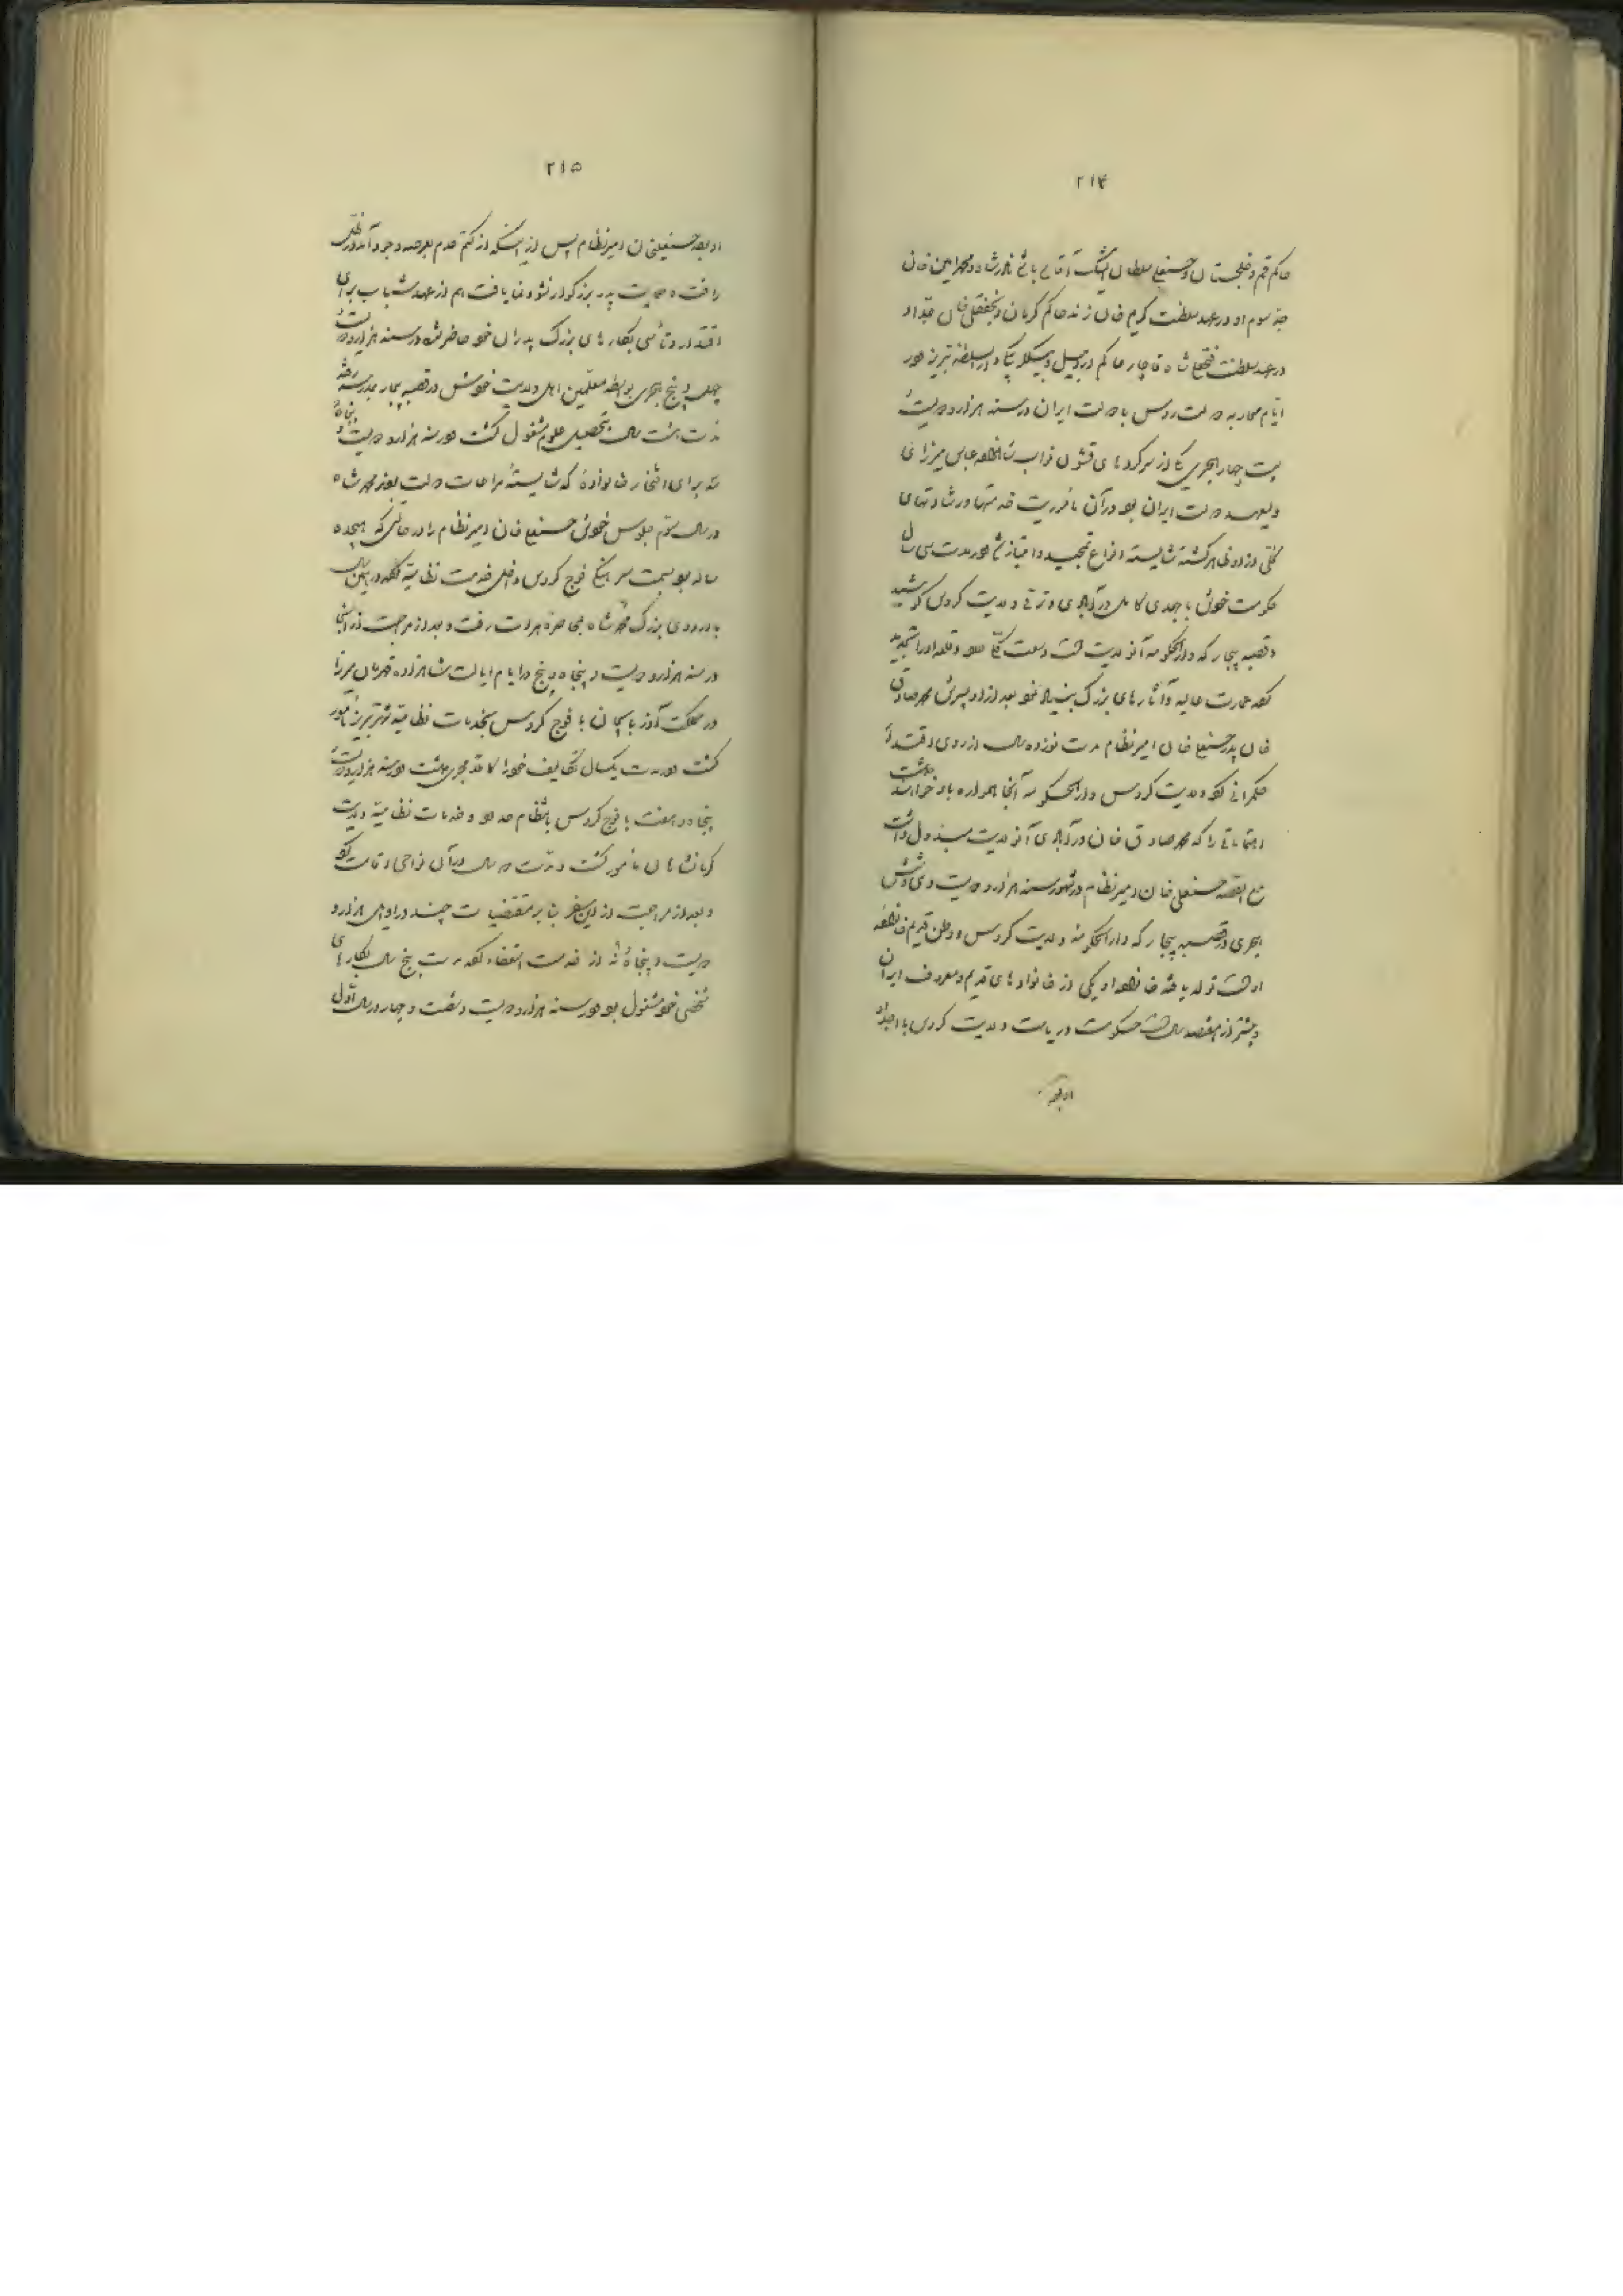 ۲۱۴
حاکم قم و خلجستان و حسنعلی سلطان ایشیک آقاسی باشی نادرشاه و محمد امین خان
جد سوم او در عهد سلطنت کریم خان زند حاکم کرمان و نجفقلی خان جد او
در عهد سلطنت فتحعلی شاه قاجار حاکم اردبیل و بیگلربیگی دار السلطنه تبریز بود در
ایام محاربه دولت روس با دولت ایران در سنه هزار و دویست و
بیست چهار هجری یکی از سرکرده های قشون نواب شاهزاده عباس میرزای
ولیعهد دولت ایران بود در آن مأموریت خدمتها و رشادتهای
کلی از او ظاهر گشته شایسته انواع تمجید و امتیاز شد و در مدت سی سال
حکومت خود با جدی کامل در آبادی و ترقی ولایت گروس کوشید
و قصبه بیجار که دار الحکومه آنولایت است وسعت داد و قلعه او را تجدید
کرده عمارت عالیه و آثارهای بزرگ بنیاد نمود بعد از او پسرش محمد صادق
خان پدر حسنعلی خان امیر نظام مدت نوزده سال از روی اقتدار
حکمرانی کرد ولایت گروس و دار الحکومه آنجا همواره باد خواهد داشت
اهتماماتی را که محمد صادق خان در آبادی آنولایت مبذول داشت
مع القصه حسنعلی خان امیر نظام در شهور سنه هزار و دویست و سی و شش
هجری در قصبه بیجار که دار الحکومه ولایت گروس و وطن قدیم خانواده
اوست تولد یافته خانواده او یکی از خانواده های قدیم و معروف ایران
و بیشتر از هفتصد سال است حکومت و ریاست ولایت گروس با اجداد
او بوده
۲۱۵
او بوده حسنعلیخان امیر نظام پس از اینکه از کتم عدم بعرصه وجود آمد در ظل
رأفت و تربیت پدر بزرگوار نشو و نما یافت هم از عهد شباب برای
اقتدار و تأسی بکارهای بزرگ پدران خود حاضر شده در سنه هزار و دویست
چهل و پنج هجری بواسطه معلمین اهل ولایت خویش در قصبه بیجار بمدرسه رفته
مدت هشت سال بتحصیل علوم مشغول گشت و در سنه هزار و دویست و پنجاه و
سه برای افتخار خانواده که شایسته مراعات دولت بود محمد شاه
در سال سوم جلوس خود حسنعلی خان امیر نظام را در حالتی که هیجده
ساله بود بسمت سرهنگی فوج گروس داخل خدمت نظامیه کرد و در همین سال
با اردوی بزرگ محمد شاه بمحاصره هرات رفت و بعد از مراجعت از آنجا
در سنه هزار و دویست و پنجاه و پنج در ایام ایالت شاهزاده قهرمان میرزا
در مملکت آذربایجان با فوج گروس بخدمات نظامیه شهر تبریز مأمور
گشت و در مدت یکسال تکالیف خود را کاملا مجری داشت و در سنه هزار و دویست
پنجاه و هفت با فوج گروس بانتظام حدود و خدمات نظامیه ولایت
کرمانشاهان مأمور گشت و مدت دو سال در آن نواحی اقامت کرد
و بعد از مراجعت از این سفر بنا بر مقتضیات چند در اوایل هزار و
دویست و پنجاه و نه از خدمت استعفا کرده مدت پنج سال بکارهای
شخصی خود مشغول بود و در سنه هزار و دویست و شصت و چهار در سال اول